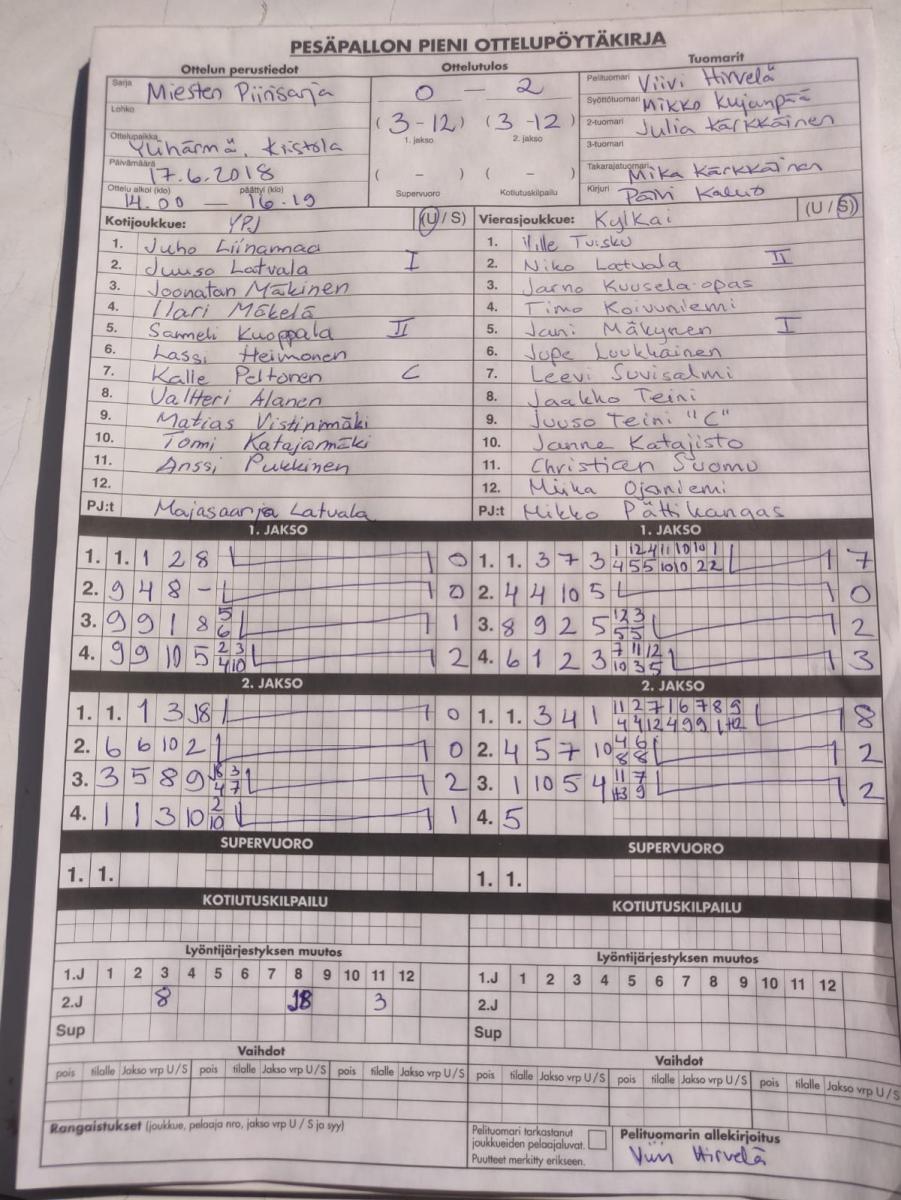 PESÄPALLON PIENI OTTELUPÖYTÄKIRJA
Ottelun perustiedot
Sarja Miesten Piirisarja
Lohko
Ottelupaikka Ylihärmä, Kristola
Päivämäärä 17.6.2018
Ottelu alkoi (klo) päättyi (klo)
14.00 — 16.19
Ottelutulos
0 — 2
(3-12) (3-12)
1. jakso 2. jakso
( - ) ( - )
Supervuoro Kotiutuskilpailu
Tuomarit
Pelituomari Viivi Hirvelä
Syöttötuomari Mikko Kujanpää
2-tuomari Julia Kärkkäinen
3-tuomari
Takarajatuomari Mika Kärkkäinen
Kirjuri Päivi
Kotijoukkue: YPJ (U / S)
1. Juho Liinamaa
2. Juuso Latvala I
3. Joonatan Mäkinen
4. Ilari Mäkelä
5. Sameli Kuoppala II
6. Lassi Heimonen
7. Kalle Peltonen C
8. Valtteri Alanen
9. Matias
10. Tomi Katajamäki
11. Anssi Pukkinen
12.
PJ:t Majasaarija Latvala
Vierasjoukkue: KylKai (U / S)
1. Ville Tuisku
2. Niko Latvala II
3. Jarno Kuusela-opas
4. Timo Koivuniemi
5. Jani Mäkynen I
6. Jope Luukkainen
7. Leevi Suvisalmi
8. Jaakko Teini
9. Juuso Teini "C"
10. Janne Katajisto
11. Christian Suomu
12. Miika Ojaniemi
PJ:t Mikko Pättikangas
1. JAKSO
1. 1. 1 2 8 0
2. 9 4 8 - 0
3. 9 9 1 8 5 1
6
4. 9 9 10 5 2 3 2
4 10
1. JAKSO
1. 1. 3 7 3 1 12 4 11 10 10 1 7
4 5 5 10 10 2 2
2. 4 4 10 5 0
3. 8 9 2 5 12 3 2
5 5
4. 6 1 2 3 7 11 12 3
10 3 5
2. JAKSO
1. 1. 1 3 J8 0
2. 6 6 10 2 0
3. 3 5 8 9 J8 3 2
4 7
4. 1 1 3 10 2 1
10
2. JAKSO
1. 1. 3 4 1 11 2 7 1 6 7 8 9 8
4 4 12 4 9 9 1 12
2. 4 5 7 10 4 6 2
8 8
3. 1 10 5 4 11 7 2
9
4. 5
SUPERVUORO
1. 1.
SUPERVUORO
1. 1.
KOTIUTUSKILPAILU
KOTIUTUSKILPAILU
Lyöntijärjestyksen muutos
1.J 1 2 3 4 5 6 7 8 9 10 11 12
2.J 8 J8 3
Sup
Lyöntijärjestyksen muutos
1.J 1 2 3 4 5 6 7 8 9 10 11 12
2.J
Sup
Vaihdot
pois tilalle Jakso vrp U / S pois tilalle Jakso vrp U / S pois tilalle Jakso vrp U / S
Vaihdot
pois tilalle Jakso vrp U / S pois tilalle Jakso vrp U / S pois tilalle Jakso vrp U / S
Rangaistukset (joukkue, pelaaja nro, jakso vrp U / S ja syy)
Pelituomari tarkastanut
joukkueiden pelaajaluvat.
Puutteet merkitty erikseen.
Pelituomarin allekirjoitus
Viivi Hirvelä